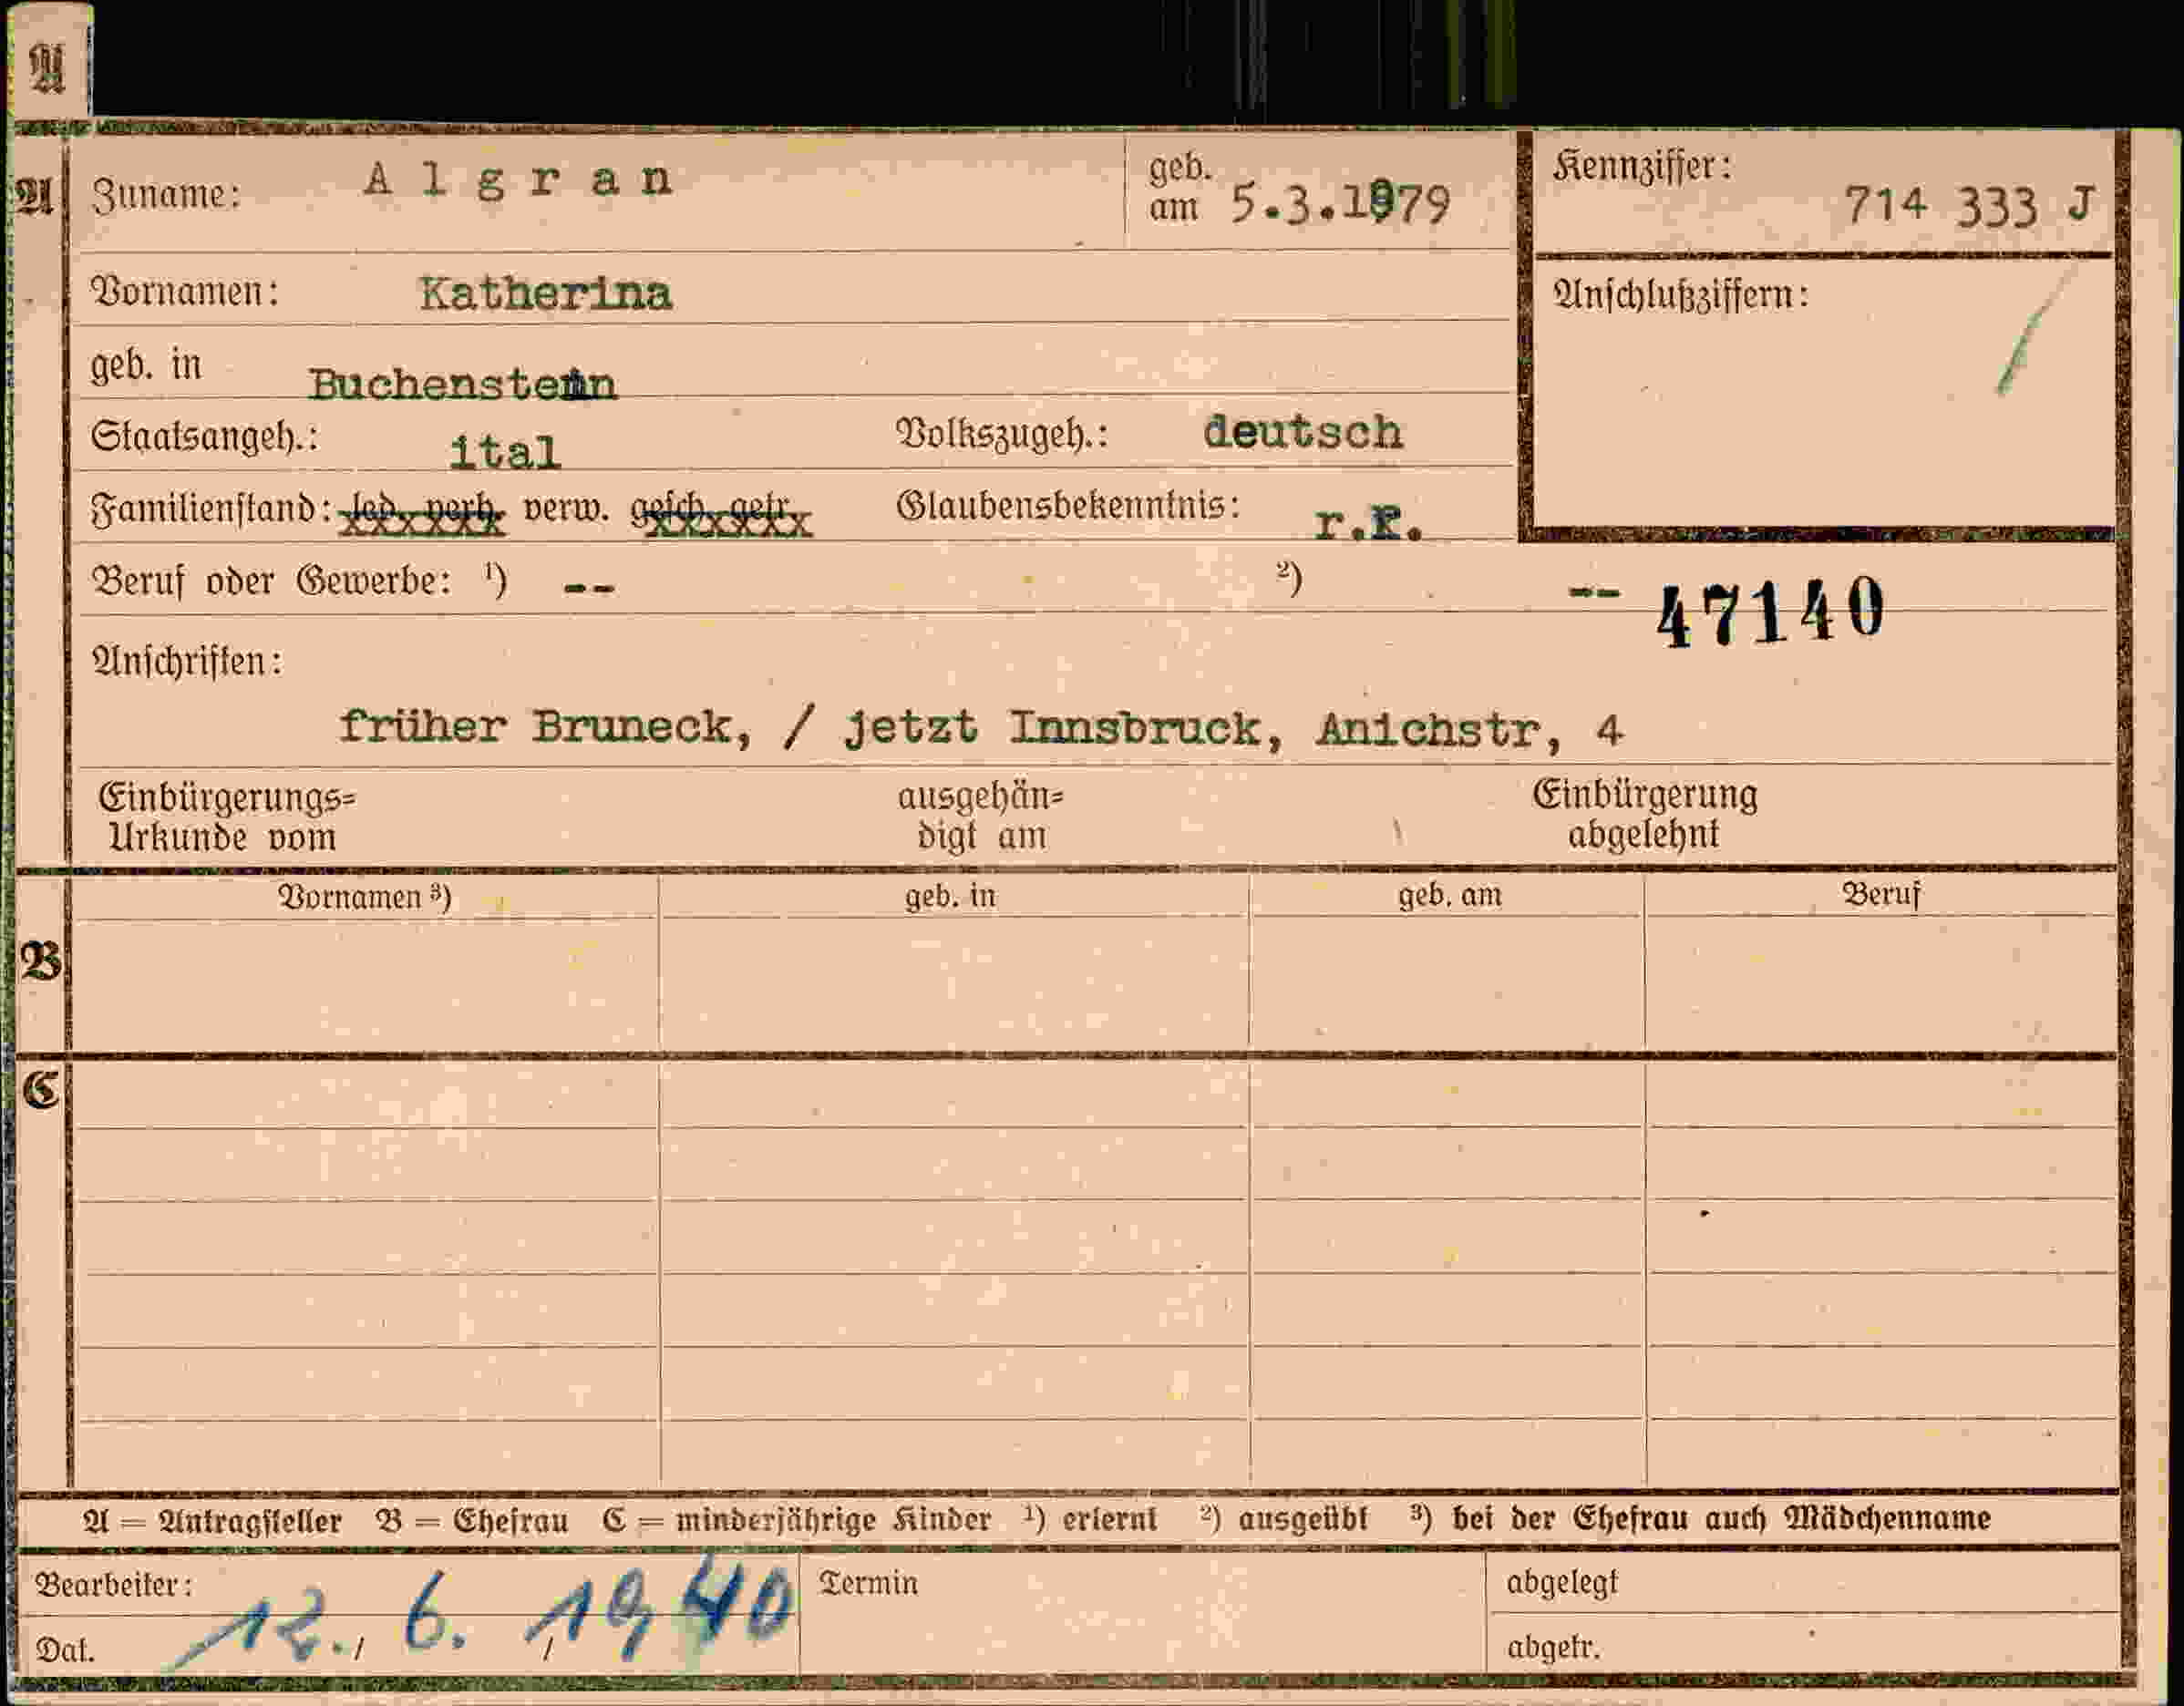 A
A Zuname: Algran geb. am 5.3.1879 Kennziffer: 714 333 J
Vornamen: Katherina Anschlußziffern: /
geb. in Buchenstein
Staatsangeh.: ital Volkszugeh.: deutsch
Familienstand: led. verh. verw. gesch. getr. Glaubensbekenntnis: r.k.
Beruf oder Gewerbe: ¹) -- ²) -- 47140
Anschriften:
früher Bruneck, / jetzt Innsbruck, Anichstr, 4
Einbürgerungs= ausgehän= Einbürgerung
Urkunde vom digt am abgelehnt
Vornamen ³) geb. in geb. am Beruf
B
C
A = Antragsteller B = Ehefrau C = minderjährige Kinder ¹) erlernt ²) ausgeübt ³) bei der Ehefrau auch Mädchenname
Bearbeiter: Termin abgelegt
Dat. 12. / 6. / 1940 abgetr.